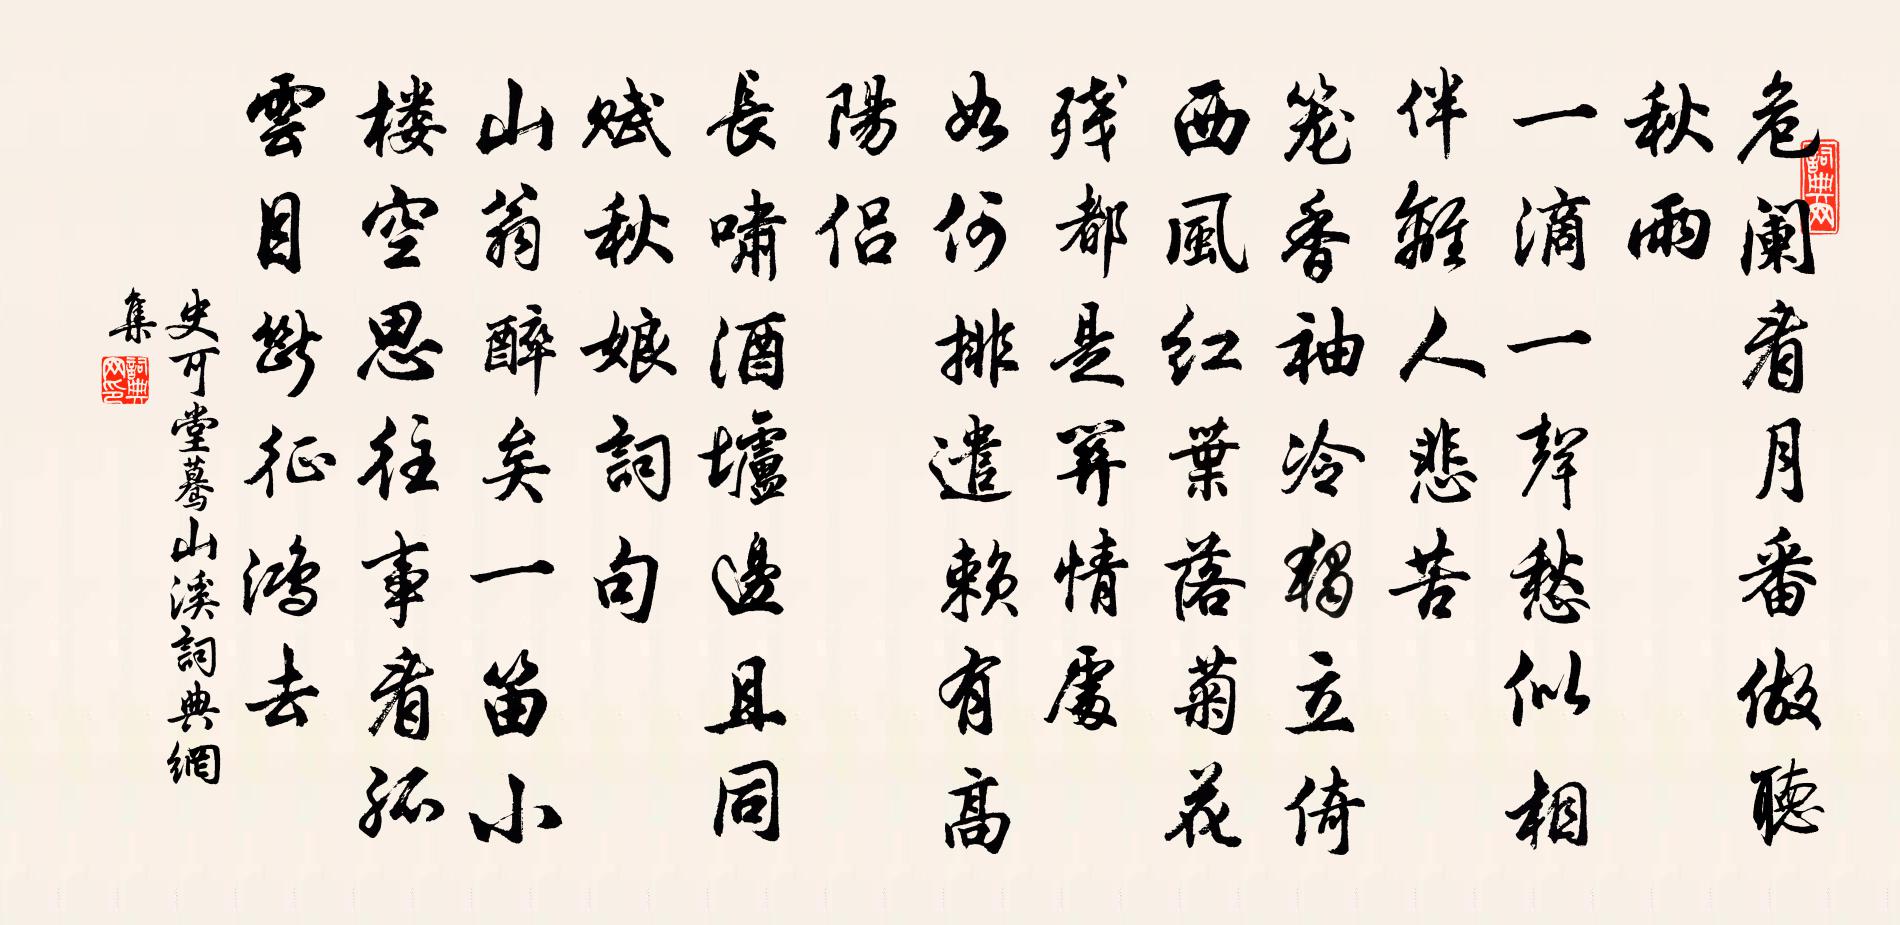 危阑看月番做聽
秋雨
一滴一聲愁似相
伴離人悲苦
笼香袖冷独立倚
西風红葉落菊花
残都是關情處
如何排遣赖有高
陽侣
長嘯酒壚邊且同
赋秋娘詞句
山翁醉矣一笛小
楼空思往事看孤
雲目断征鴻去
史可堂驀山溪詞典網
集
詞典网
詞典网印